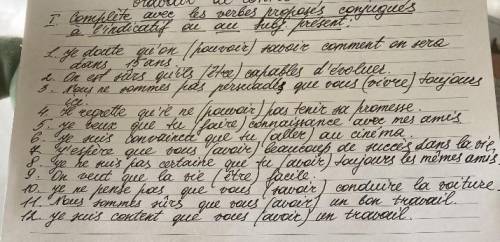 I. Complète avec les verbes proposés conjugués
à l'indicatif ou au subj présent.
1. Je doute qu'on (pouvoir) savoir comment on sera
dans 15 ans.
2. On est sûrs qu'ils (être) capables d'évoluer.
3. Nous ne sommes pas persuadés que vous (vivre) toujours
ici.
4. Je regrette qu'il ne (pouvoir) pas tenir sa promesse.
5. Je veux que tu (faire) connaissance avec mes amis
6. Je suis convaincu que tu (aller) au cinéma.
7. J'espère que vous (avoir) beaucoup de succès dans la vie.
8. Je ne suis pas certaine que tu (avoir) toujours les mêmes amis
9. On veut que la vie (être) facile.
10. Je ne pense pas que vous (savoir) conduire la voiture.
11. Nous sommes sûrs que vous (avoir) un bon travail.
12. Je suis content que vous (avoir) un travail.